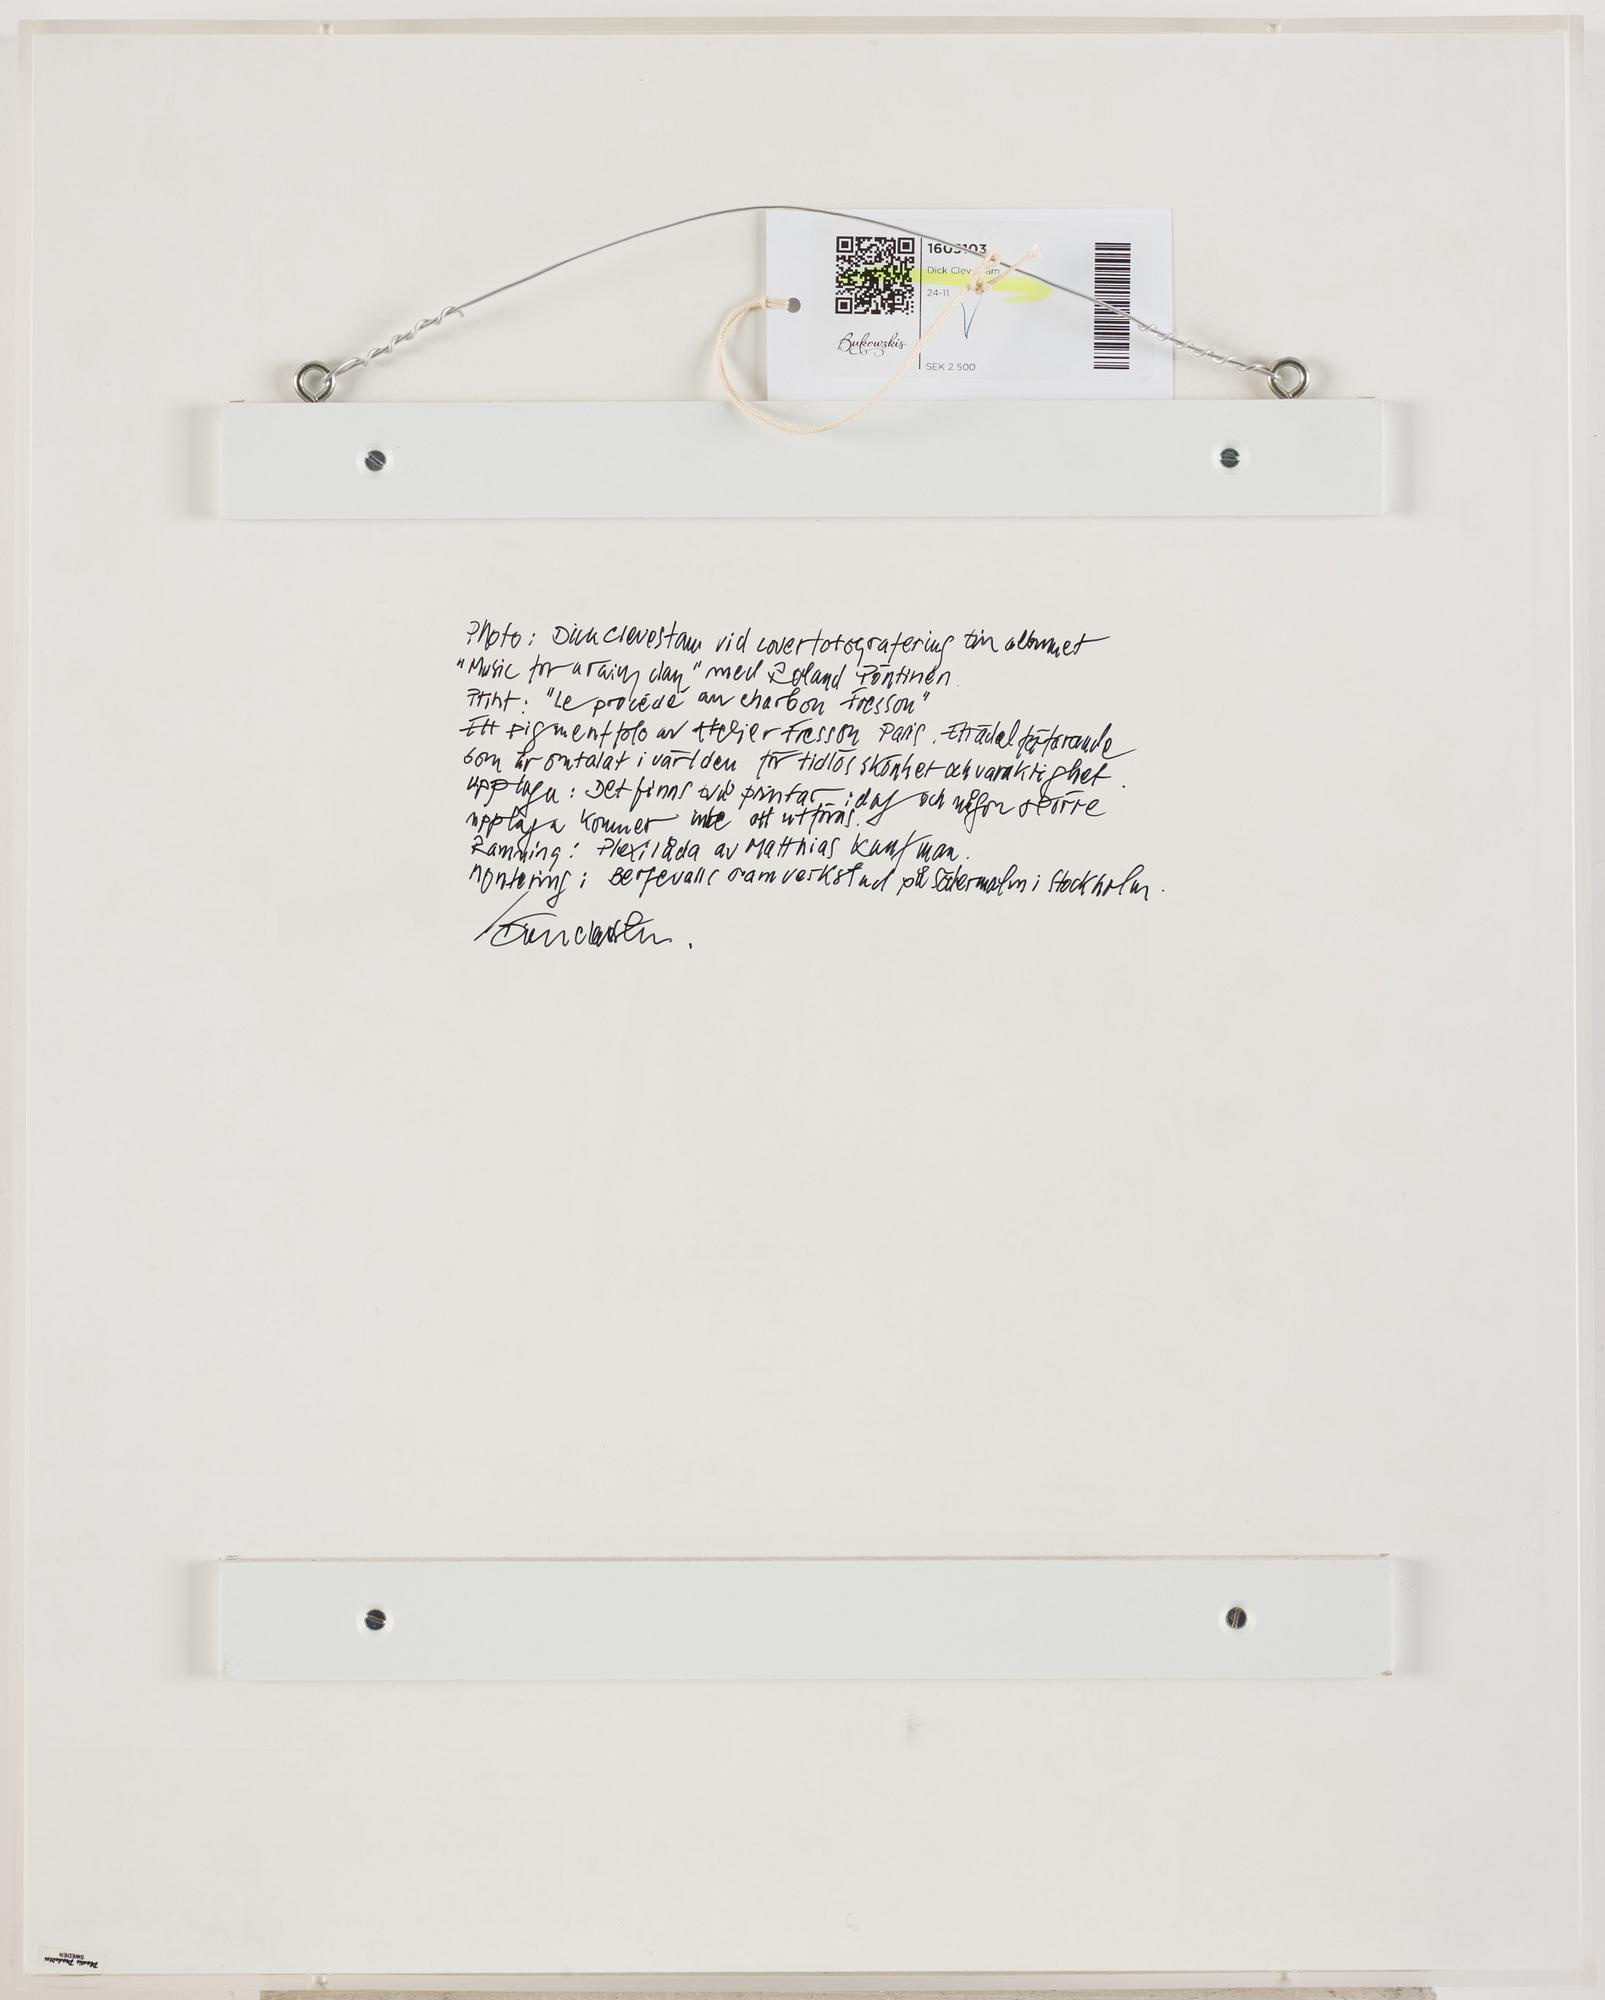 Dick Clevestam
24-11
Bukowskis
SEK 2 500
Photo: Dick Clevestam vid coverfotografering till albumet
"Music for a rainy day" med Roland Pöntinen.
Print: "Le procédé au charbon Fresson"
Ett pigmentfoto av Atelier Fresson Paris. Ett ädelförfarande
som är omtalat i världen för tidlös skönhet och varaktighet.
Upplaga: Det finns två printar idag och någon större
upplaga kommer inte att utföras.
Ramning: Plexilåda av Matthias Kaufman.
Montering: Bergevalls ramverkstad på Södermalm i Stockholm.
SWEDEN